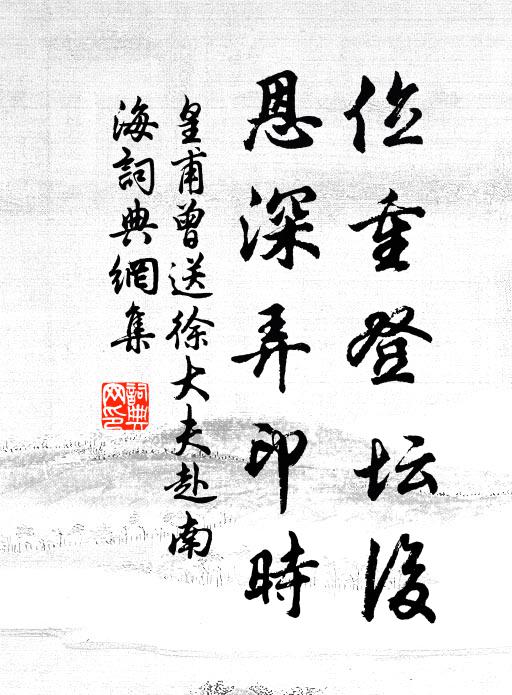 位重登坛後
恩深弄印時
皇甫曾送徐大夫赴南
海詞典網集
詞典
网印